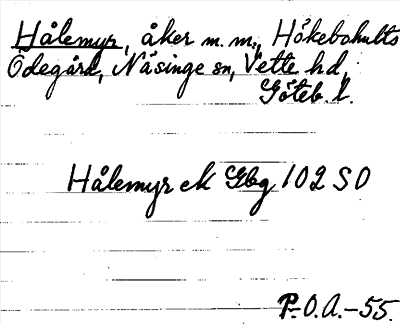 Hålemyr, åker m.m., Hökebohults
Ödegård, Näsinge sn, Vette hd,
Göteb. l.
Hålemyr ek Gbg 102 SO
P.O.A.-55.